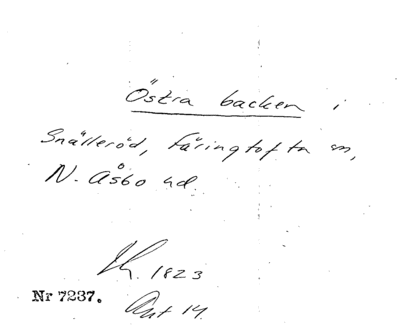 Östra backen i
Snälleröd, Färingtofta sn,
N. Åsbo hd.
1823
Nr 7237.
Ant 14.